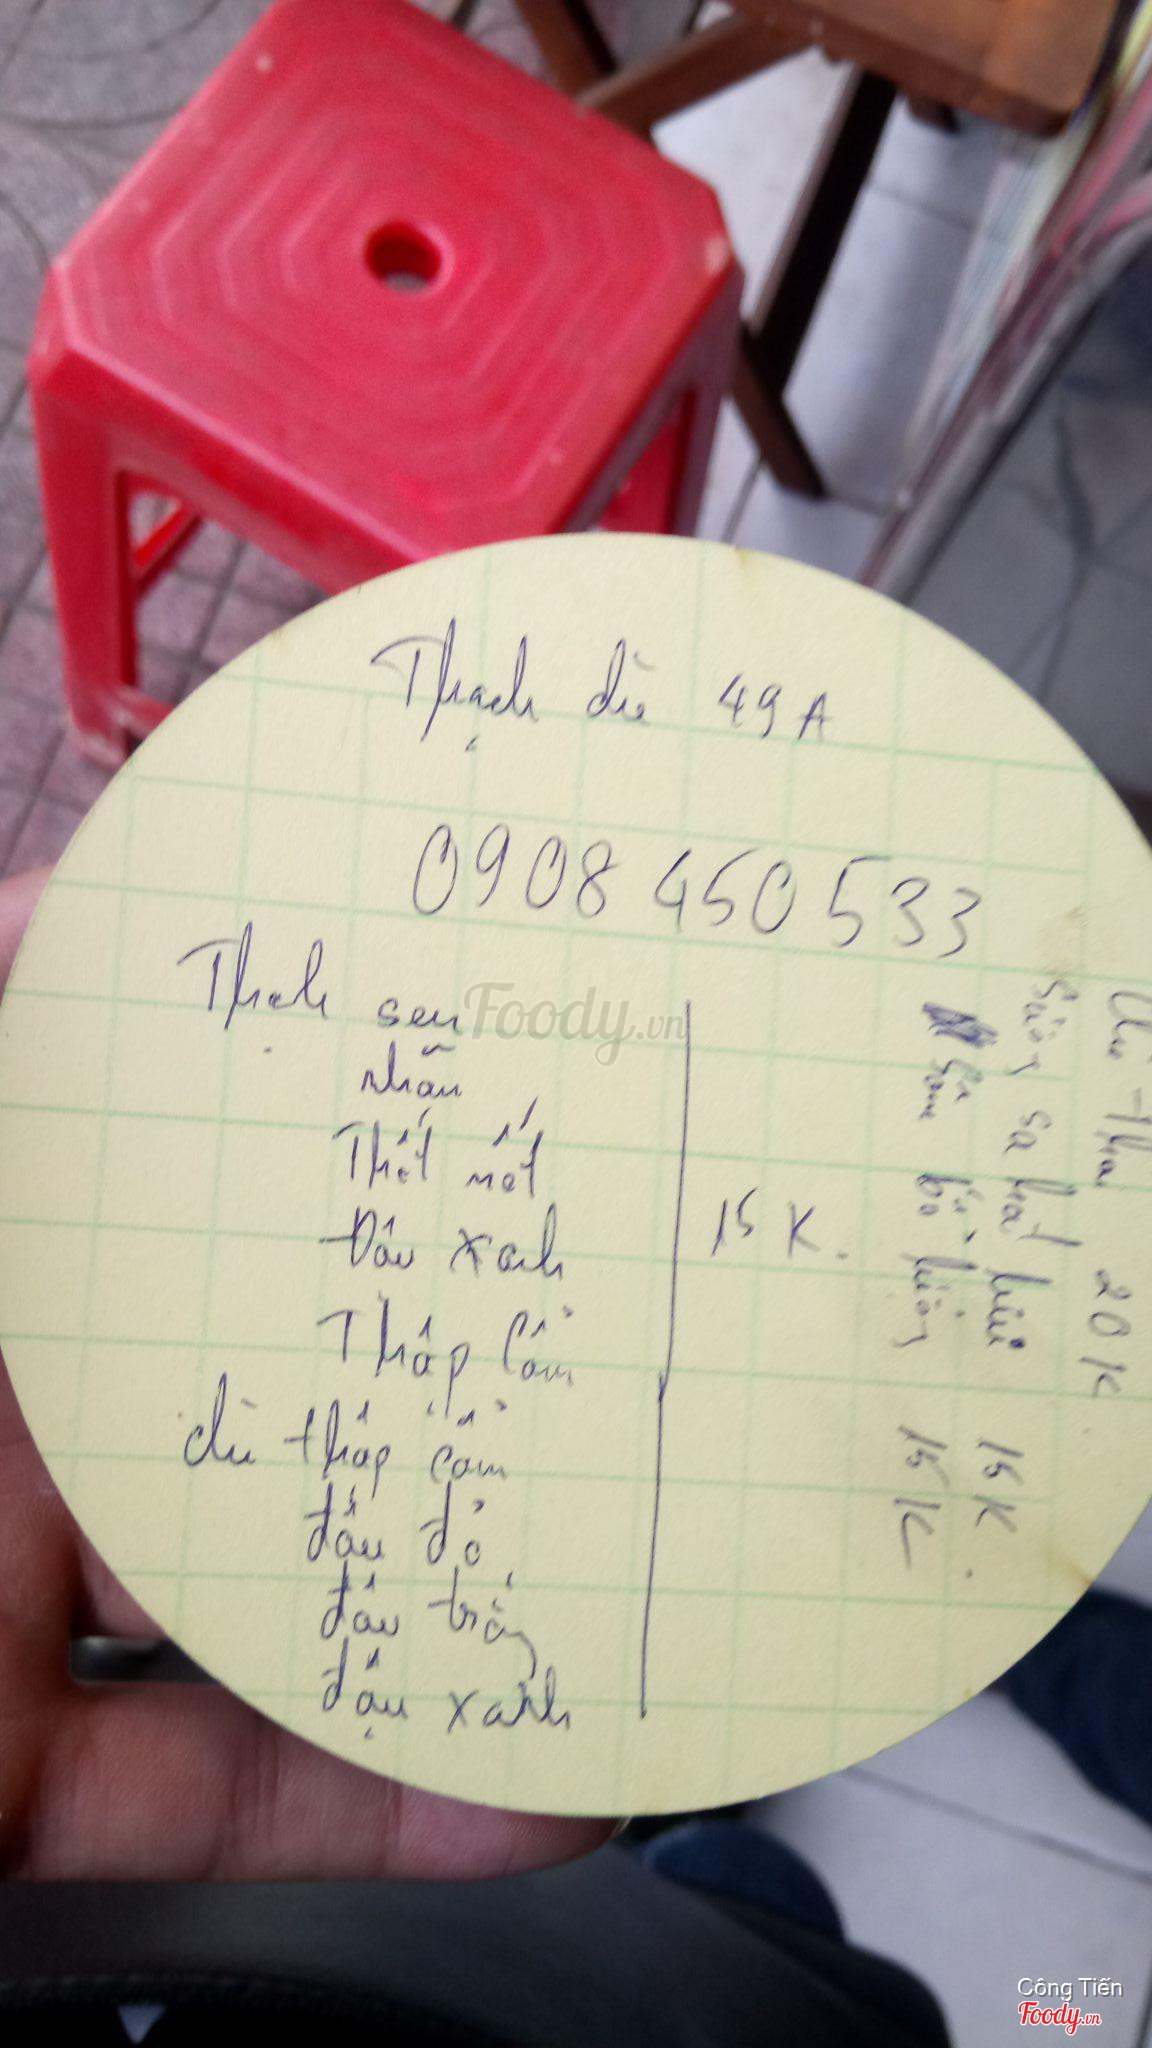 Thạch dừ 49A
0908 450 533
Thạch sen
nhãn
Thốt nốt
Đậu xanh
Thập Cẩm
15 K.
chè thập cẩm
đậu đỏ
đậu trắng
đậu xanh
thai 20K
Sương sa hạt lựu 15K.
15K
Foody.vn
Công Tiến
Foody.vn